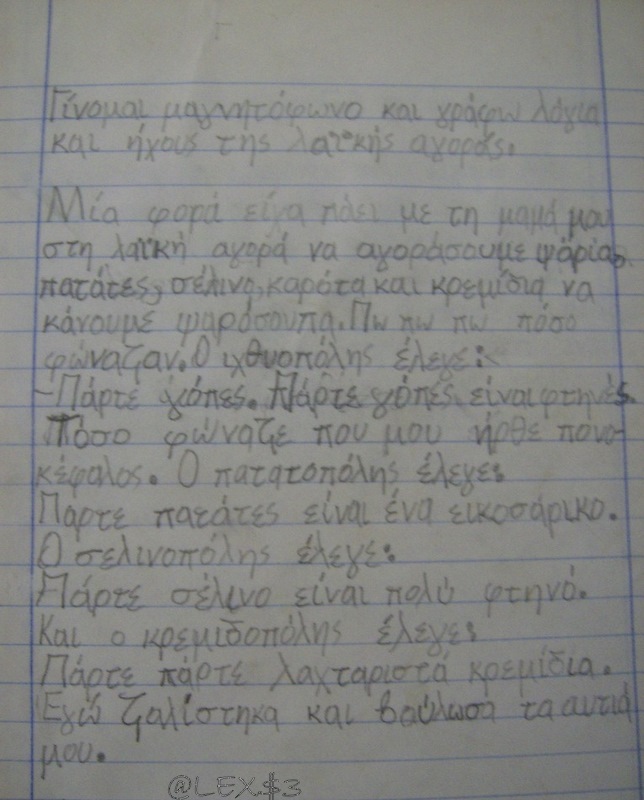 Γίνομαι μαγνητόφωνο και γράφω λόγια
και ήχους της λαϊκής αγοράς.
Μία φορά είχα πάει με τη μαμά μου
στη λαϊκή αγορά να αγοράσουμε ψάρια,
πατάτες, σέλινο, καρότα και κρεμίδια να
κάνουμε ψαρόσουπα. Πω πω πω πόσο
φώναζαν. Ο ιχθυοπόλης έλεγε:
-Πάρτε γόπες. Πάρτε γόπες είναι φτηνές.
Πόσο φώναζε που μου ήρθε πονο-
κέφαλος. Ο πατατοπόλης έλεγε:
Πάρτε πατάτες είναι ένα εικοσάρικο.
Ο σελινοπόλης έλεγε:
Πάρτε σέλινο είναι πολύ φτηνό.
Και ο κρεμιδοπόλης έλεγε:
Πάρτε πάρτε λαχταριστά κρεμίδια.
Εγώ ζαλίστηκα και βούλωσα τα αυτιά
μου.
@LEX$3